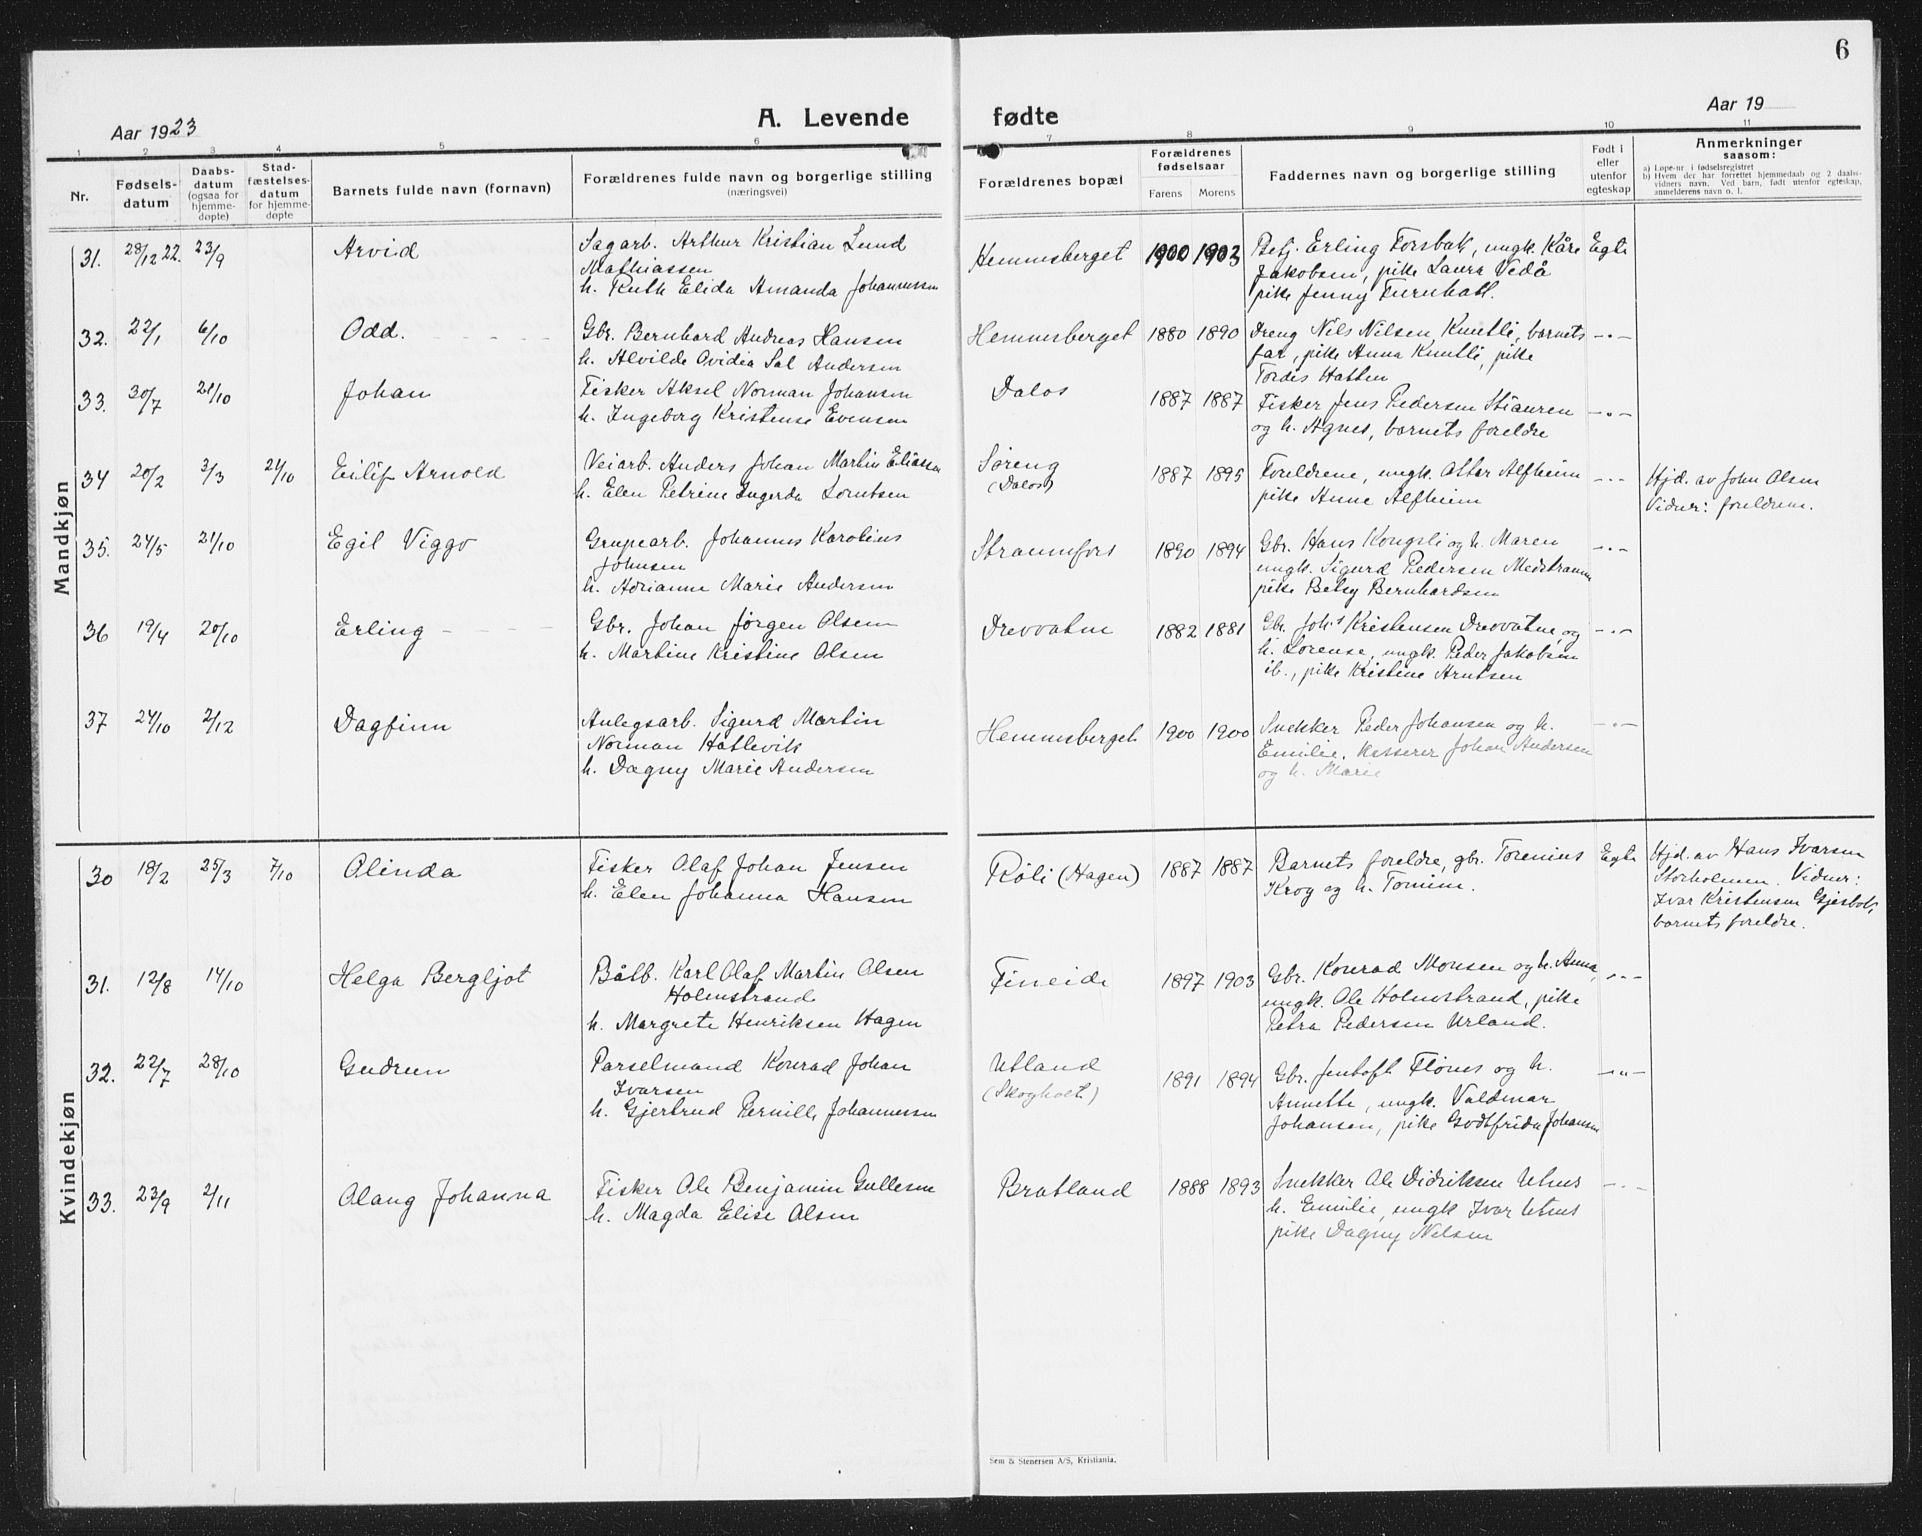 6
Aar 1923
A. Levende fødte
Aar 19
1 2 3 4 5 6 7 8 9 10 11
Nr.
Fødsels-
datum
Daabs-
datum
(ogsaa for
hjemme-
døpte)
Stad-
fæstelses-
datum
for hjemme-
døpte
Barnets fulde navn (fornavn)
Forældrenes fulde navn og borgerlige stilling
(næringsvei)
Forældrenes bopæl
Forældrenes
fødselsaar
Farens Morens
Faddernes navn og borgerlige stilling
Født i
eller
utenfor
egteskap
Anmerkninger
saasom:
a) Løpe-nr. i fødselsregistret
b) Hvem der har forrettet hjemmedaab og 2 daabs-
vidners navn. Ved barn, født utenfor egteskap,
anmelderens navn o. l.
Mandkjøn
31. 28/12 22. 23/9 Arvid
Sagarb. Arthur Kristian Lund
Mathiassen
h. Ruth Elida Amanda Johannessen
Hemnesberget 1900 1903
Betj. Erling Forsbak, ungk. Kåre
Jakobsen, pike Laura Vedå
pike Jenny Furuhatt.
Egte
32. 22/1 6/10 Odd.
Gbr. Bernhard Andreas Hansen
h. Alvilde Ovidia Sal Andersen
Hemnesberget 1880 1890
Dreng Nils Nilsen, Knutli, barnets
far, pike Anna Knutli, pike
Tordis Hatten
-"-
33. 30/7 21/10 Johan
Fisker Aksel Norman Johansen
h. Ingeborg Kristense Evensen
Dalos 1887 1887
Fisker Jens Pedersen Stiauren
og h. Agnes, barnets foreldre
-"-
34 20/2 3/3 21/10 Eilif Arnold
Veiarb. Anders Johan Martin Eliassen
h. Elen Petrine Ingerda Lorntsen
Søreng
(Dalos) 1887 1895
Foreldrene, ungk. Ottar Alfheim
pike Anne Alfheim
-"-
Hjd. av John Olsen
Vidner: foreldrene.
35. 24/5 21/10 Egil Viggo
Grupearb. Johannes Karolius
Johnsen
h. Adrianne Marie Andersen
Straumfors 1890 1894
Gbr. Hans Kongsli og h. Maren
ungk. Sigurd Pedersen Medstraum
pike Betsy Bernhardsen
-"-
36 19/4 20/10 Erling
Gbr. Johan Jørgen Olsen
h. Martine Kristine Olsen
Drevvatne 1882 1881
Gbr. Johs Kristensen Drevvatne, og
h. Lorense, ungk. Peder Jakobsen
ib., pike Kristine Arntsen
-"-
37 24/10 2/12 Dagfinn
Anlegsarb. Sigurd Martin
Norman Hatlevik
h. Dagny Marie Andersen
Hemnesberget 1900 1900
Snekker Peder Johansen og h.
Emilie. Kasserer Johan Andersen
og h. Marie
-"-
Kvindekjøn
30 18/2 25/3 7/10 Olinda
Fisker Olaf Johan Jensen
h. Elen Johanna Hansen
Røli (Hagen) 1887 1887
Barnets foreldre, gbr. Torenius
Krog og h. Tomine.
Egte
Hjd. av Hans Ivarsen
Storholmen. Vidner:
Ivar Kristensen Gjesbak,
barnets foreldre.
31. 12/8 14/10 Helga Bergljot
Båtb. Karl Olaf Martin Olsen
Holmstrand
h. Margrete Henriksen Hagen
Fineide 1897 1903
Gbr. Konrad Monsen og h. Anna,
ungk. Ole Holmstrand, pike
Petra Pedersen Urland.
-"-
32. 22/7 28/10 Gudrun
Parselmand Konrad Johan
Ivarsen
h. Gjertrud Pernille Johannessen
Utland
(Skogholt) 1891 1894
Gbr. Jentoft Flönes og h.
Annette, ungk. Valdmar
Johansen, pike Godtfrida Johansen
-"-
33. 23/9 2/11 Olaug Johanna
Fisker Ole Benjamin Gullesen
h. Magda Elise Olsen
Bratland 1888 1893
Snekker Ole Didriksen Uhus
h. Emilie, ungk Ivar Uhus
pike Dagny Nilsen
-"-
Sem & Stenersen A/S, Kristiania.